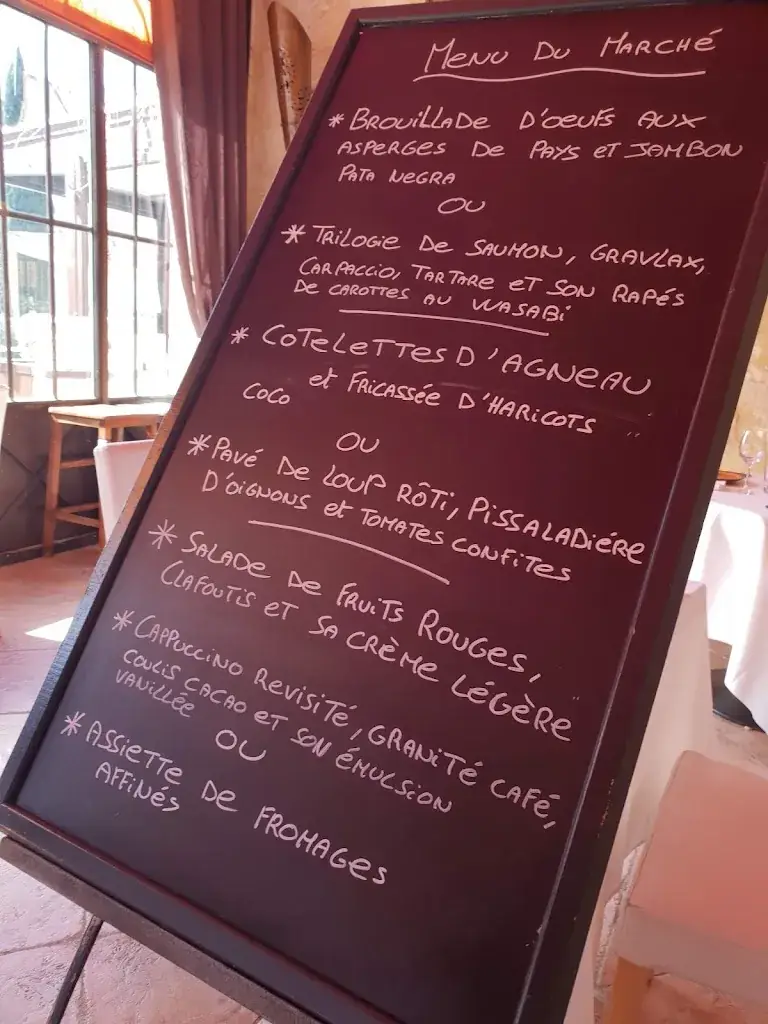 MENU DU MARCHÉ
* BROUILLADE D'OEUFS AUX
ASPERGES DE PAYS et JAMBON
PATA NEGRA
OU
* TRILOGIE DE SAUMON, GRAVLAX,
CARPACCIO, TARTARE et SON RAPÉS
DE CAROTTES AU WASABI
* COTELETTES D'AGNEAU
et FRICASSÉE D'HARICOTS
COCO
OU
* PAVÉ DE LOUP RÔTI, PISSALADIÉRE
D'OIGNONS et TOMATES CONFITES
* SALADE DE FRUITS ROUGES,
CLAFOUTIS ET SA CRÈME LÉGÈRE
* CAPPUCCINO REVISITÉ, GRANITÉ CAFÉ,
COULIS CACAO ET SON ÉMULSION
VANILLÉE
OU
* ASSIETTE DE FROMAGES
AFFINÉS